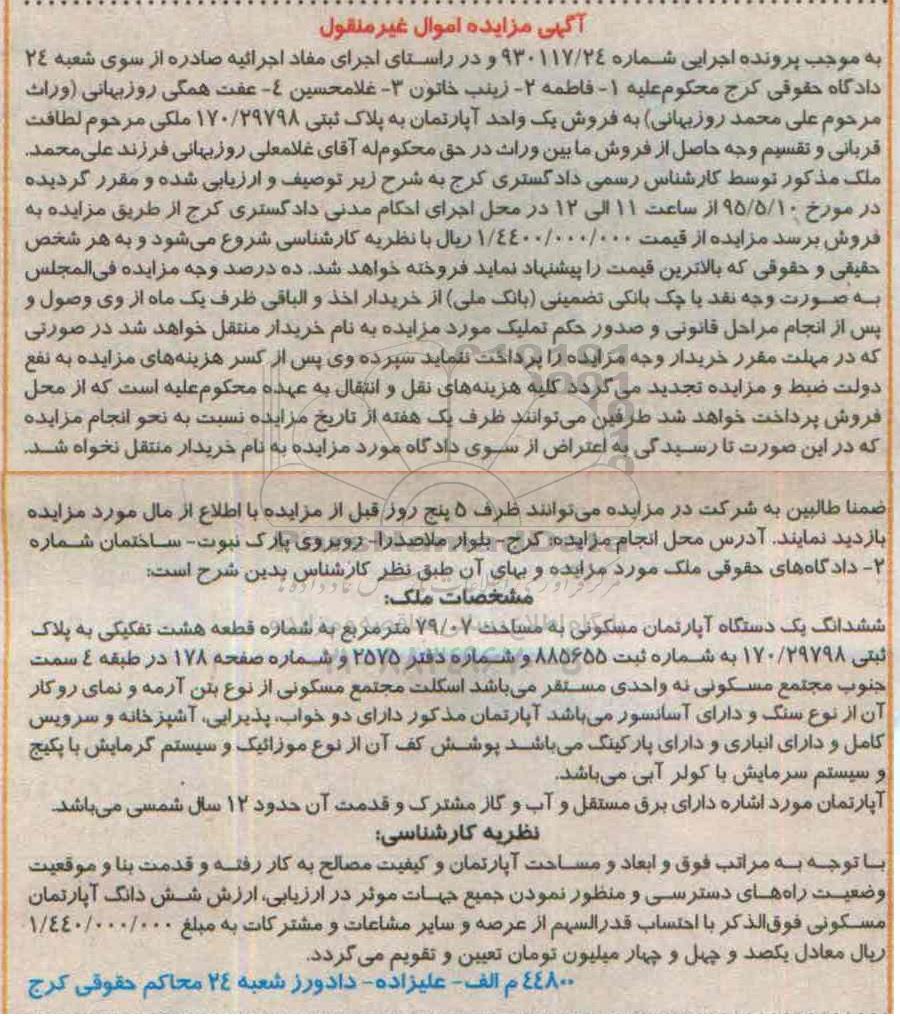 آگهی مزایده اموال غیرمنقول
به موجب پرونده اجرایی شماره ۹۳۰۱۱۷/۲٤ و در راستای اجرای مفاد اجرائیه صادره از سوی شعبه ۲٤
دادگاه حقوقی کرج محکوم‌علیه ۱- فاطمه ۲- زینب خاتون ۳- غلامحسین ٤- عفت همگی روزبهانی (وراث
مرحوم علی محمد روزبهانی) به فروش یک واحد آپارتمان به پلاک ثبتی ۱۷۰/۲۹۷۹۸ ملکی مرحوم لطافت
قربانی و تقسیم وجه حاصل از فروش مابین وراث در حق محکوم‌له آقای غلامعلی روزبهانی فرزند علی‌محمد.
ملک مذکور توسط کارشناس رسمی دادگستری کرج به شرح زیر توصیف و ارزیابی شده و مقرر گردیده
در مورخ ۹۵/۵/۱۰ از ساعت ۱۱ الی ۱۲ در محل اجرای احکام مدنی دادگستری کرج از طریق مزایده به
فروش برسد مزایده از قیمت ۱/٤٤۰۰/۰۰۰/۰۰۰ ریال با نظریه کارشناسی شروع می‌شود و به هر شخص
حقیقی و حقوقی که بالاترین قیمت را پیشنهاد نماید فروخته خواهد شد. ده درصد وجه مزایده فی‌المجلس
به صورت وجه نقد یا چک بانکی تضمینی (بانک ملی) از خریدار اخذ و الباقی ظرف یک ماه از وی وصول و
پس از انجام مراحل قانونی و صدور حکم تملیک مورد مزایده به نام خریدار منتقل خواهد شد در صورتی
که در مهلت مقرر خریدار وجه مزایده را پرداخت ننماید سپرده وی پس از کسر هزینه‌های مزایده به نفع
دولت ضبط و مزایده تجدید می‌گردد کلیه هزینه‌های نقل و انتقال به عهده محکوم‌علیه است که از محل
فروش پرداخت خواهد شد طرفین می‌توانند ظرف یک هفته از تاریخ مزایده نسبت به نحو انجام مزایده
که در این صورت تا رسیدگی به اعتراض از سوی دادگاه مورد مزایده به نام خریدار منتقل نخواه شد.
ضمنا طالبین به شرکت در مزایده می‌توانند ظرف ۵ پنج روز قبل از مزایده با اطلاع از مال مورد مزایده
بازدید نمایند. آدرس محل انجام مزایده: کرج- بلوار ملاصدرا- روبروی پارک نبوت- ساختمان شماره
۲- دادگاه‌های حقوقی ملک مورد مزایده و بهای آن طبق نظر کارشناس بدین شرح است:
مشخصات ملک:
ششدانگ یک دستگاه آپارتمان مسکونی به مساحت ۷۹/۰۷ مترمربع به شماره قطعه هشت تفکیکی به پلاک
ثبتی ۱۷۰/۲۹۷۹۸ به شماره ثبت ۸۸۵۶۵۵ و شماره دفتر ۲۵۷۵ و شماره صفحه ۱۷۸ در طبقه ٤ سمت
جنوب مجتمع مسکونی نه واحدی مستقر می‌باشد اسکلت مجتمع مسکونی از نوع بتن آرمه و نمای روکار
آن از نوع سنگ و دارای آسانسور می‌باشد آپارتمان مذکور دارای دو خواب، پذیرایی، آشپزخانه و سرویس
کامل و دارای انباری و دارای پارکینگ می‌باشد پوشش کف آن از نوع موزائیک و سیستم گرمایش با پکیج
و سیستم سرمایش با کولر آبی می‌باشد.
آپارتمان مورد اشاره دارای برق مستقل و آب و گاز مشترک و قدمت آن حدود ۱۲ سال شمسی می‌باشد.
نظریه کارشناسی:
با توجه به مراتب فوق و ابعاد و مساحت آپارتمان و کیفیت مصالح به کار رفته و قدمت بنا و موقعیت
وضعیت راه‌های دسترسی و منظور نمودن جمیع جهات موثر در ارزیابی، ارزش شش دانگ آپارتمان
مسکونی فوق‌الذکر با احتساب قدرالسهم از عرصه و سایر مشاعات و مشترکات به مبلغ ۱/٤٤۰/۰۰۰/۰۰۰
ریال معادل یکصد و چهل و چهار میلیون تومان تعیین و تقویم می‌گردد.
٤٤۸۰۰ م الف- علیزاده- دادورز شعبه ۲٤ محاکم حقوقی کرج